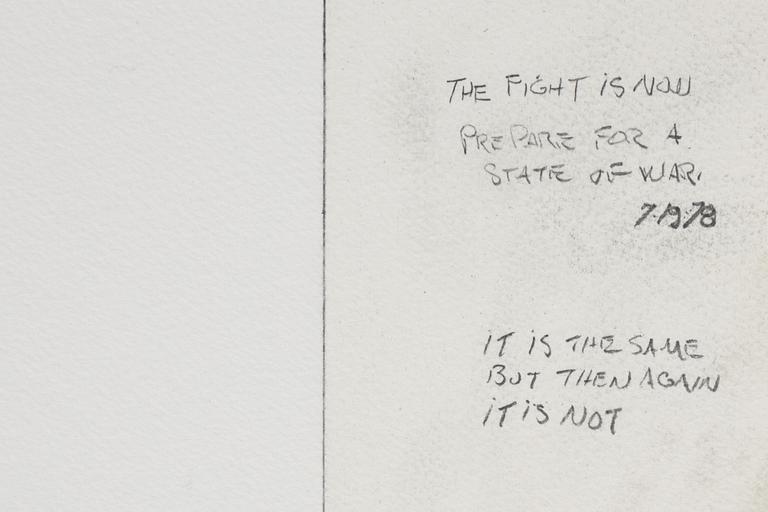 THE FIGHT IS NOW
PREPARE FOR A
STATE OF WAR.
7.19.78
IT IS THE SAME
BUT THEN AGAIN
IT IS NOT